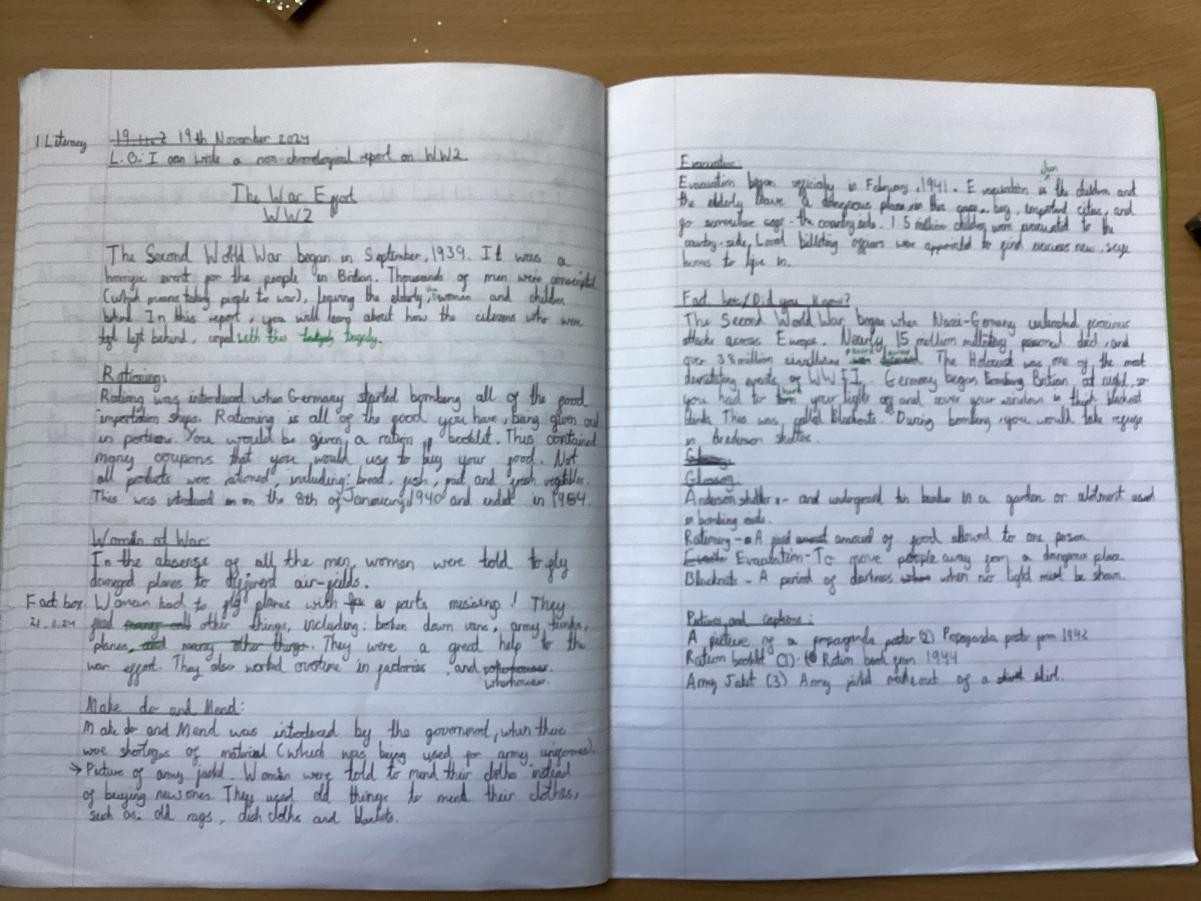 1 Literacy
19th November 2024
L.O: I can write a non-chronological report on WW2
The War Effort
WW2
The Second World War began in September, 1939. It was a
horrific event for the people in Britian. Thousands of men were conscripted
(which means taking people to war), leaving the elderly, women and children
behind. In this report, you will learn about how the citizens who were
left behind, coped with this tragedy.
Rationing:
Rationg was introduced when Germany started bombing all of the food
importation ships. Rationing is all of the food you have, being given out
in portion. You would be given a ration booklit. This contained
many coupons that you would use to buy your food. Not
all products were rationed, including: bread, fish, and fresh
This was on the 8th of January, 1940 and in 1954.
Women at War:
In the absense of all the men, women were told to fly
damaged planes to different air-fields.
Fact box
21.11.24
Woman had to fly planes with a parts missing! They
other things, including: broken down vans, army
planes, and many other things. They were a great help to the
war effort. They also worked in factories and
Make do and Mend:
Make do and Mend was by the government, when there
were of material (which was being used for army uniforms).
→ Picture of army . Women were told to mend their cloths instead
of buying new ones. They used old things to mend their clothes,
such as: old rags, dish cloths and blankets.
Evacuation
Evacuation began officially in February, 1941. Evacuation is the children and
the elderly leave a dangerous place in this case, big, important cities, and
go somewhere safe - the country side. 1.5 million children were evacuated to the
country-side, Local billiting officers were appointed to find new, safe
homes to live in.
Fact box/Did you know?
The Second World War began when Nazi-Germany
attacks across Europe. Nearly 15 million personnel died, and
over 38 million The Holocaust was one of the most
events of WWII. Germany began Bombing Britian at night, so
you had to turn your lights off and cover your windows in thick blackout
This was called blackouts. During bombing, you would take refuge
in
Glossary
Anderson - and in a garden or used
in bombing raids.
Rationing - A fixed amount of food allowed to one person
Evacuation - To move people away from a dangerous place
Blackouts - A period of darkness when no light must be shown.
Pictures and captions:
A picture of a propaganda poster (2) Propaganda poster from 1942
Ration booklit (1) Ration book from 1944
Army (3) Army made out of a skirt.